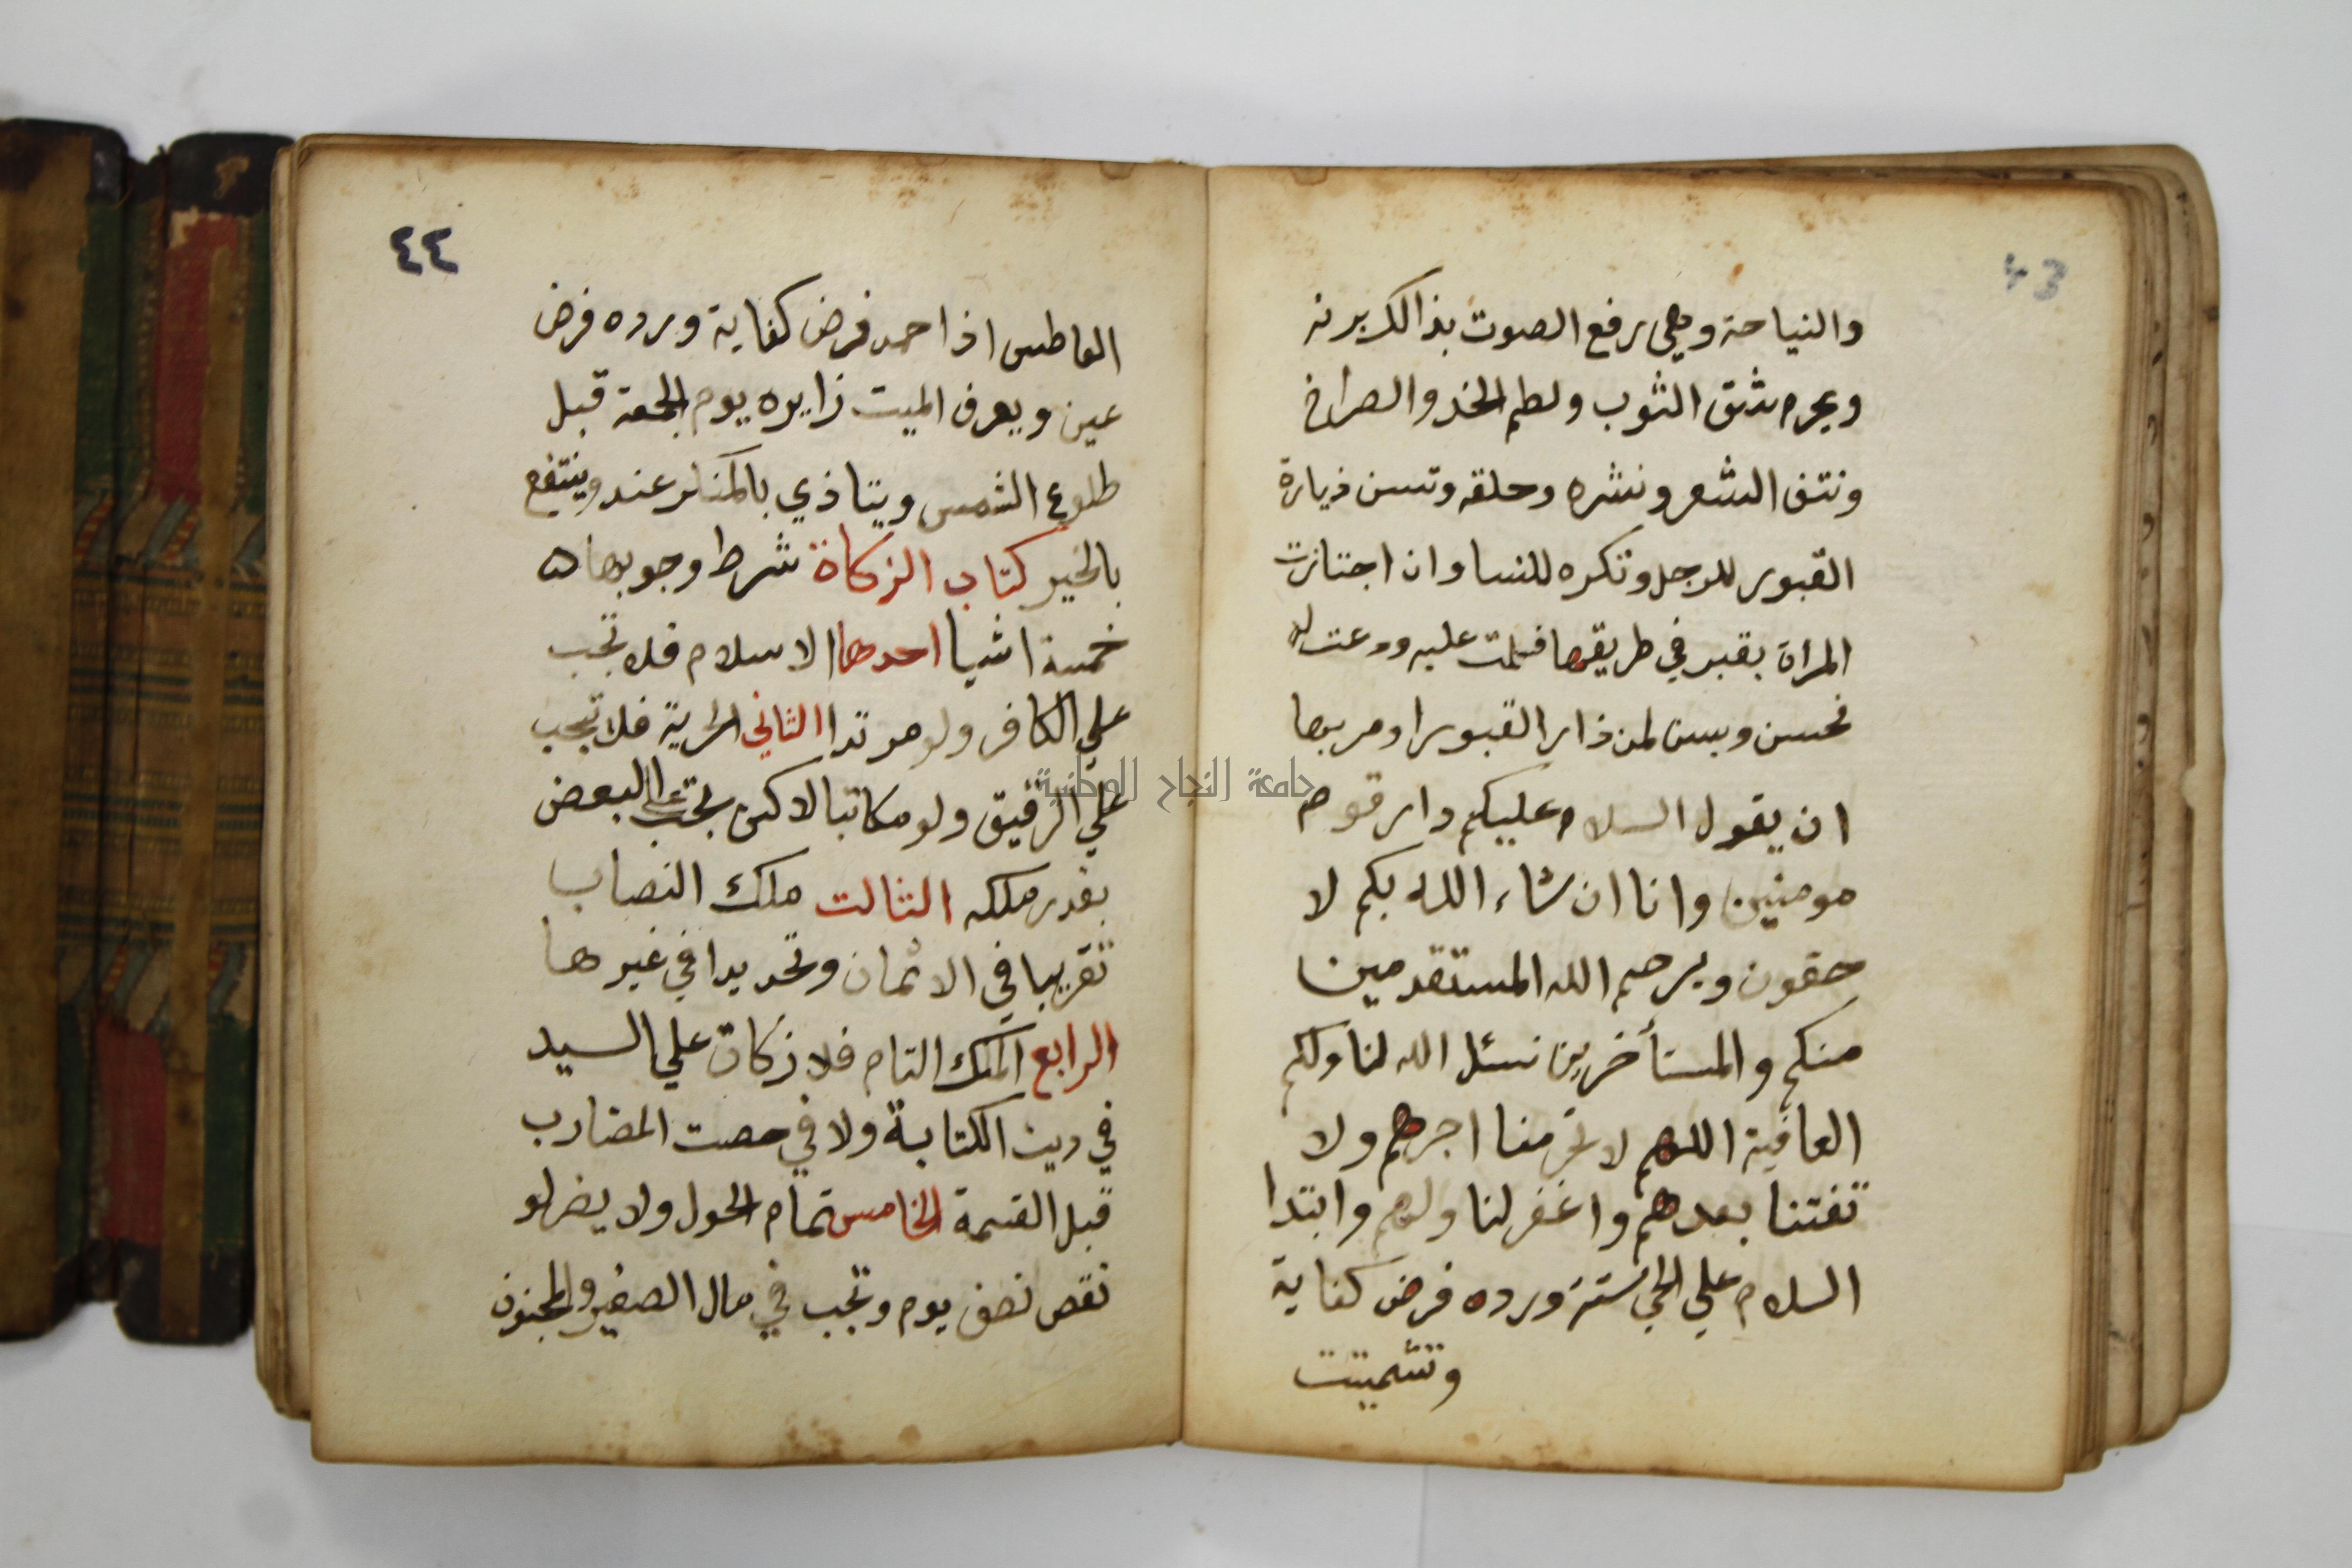 43
والنياحة وهي رفع الصوت بذالك برنه
ويحرم شق الثوب ولطم الخد والصراخ
ونتف الشعر ونشره وحلقه وتسن زيارة
القبور للرجل وتكره للنسا وان اجتازت
المراة بقبر في طريقها فسلمت عليه ودعت له
فحسن ويسن لمن زار القبور او مر بها
ان يقول السلام عليكم دار قوم
مومنين وانا ان شاء الله بكم لا
حقون ويرحم الله المستقدمين
منكم والمستأخرين نسئل الله لنا ولكم
العافية اللهم لا تحرمنا اجرهم ولا
تفتنا بعدهم واغفر لنا ولهم وابتدا
السلام علي الحي سنة ورده فرض كفاية
وتشميت
٤٤
العاطس اذا حمد فرض كفاية ورده فرض
عين ويعرف الميت زايره يوم الجمعة قبل
طلوع الشمس ويتاذي بالمنكر عنده وينتفع
بالخير كتاب الزكاة شرط وجوبها ٥
خمسة اشيا احدها الاسلام فلا تجب
علي الكافر ولو مرتدا الثاني الحرية فلا تجب
علي الرقيق ولو مكاتبا لاكن تجب علي البعض
بقدر ملكه الثالت ملك النصاب
تقريبا في الاثمان وتحديدا في غيرها
الرابع الملك التام فلا زكات علي السيد
في دين الكتابة ولا في حصت المضارب
قبل القسمة الخامس تمام الحول ولا يضر لو
نقص نصف يوم وتجب في مال الصغير والمجنون
جامعة النجاح الوطنية